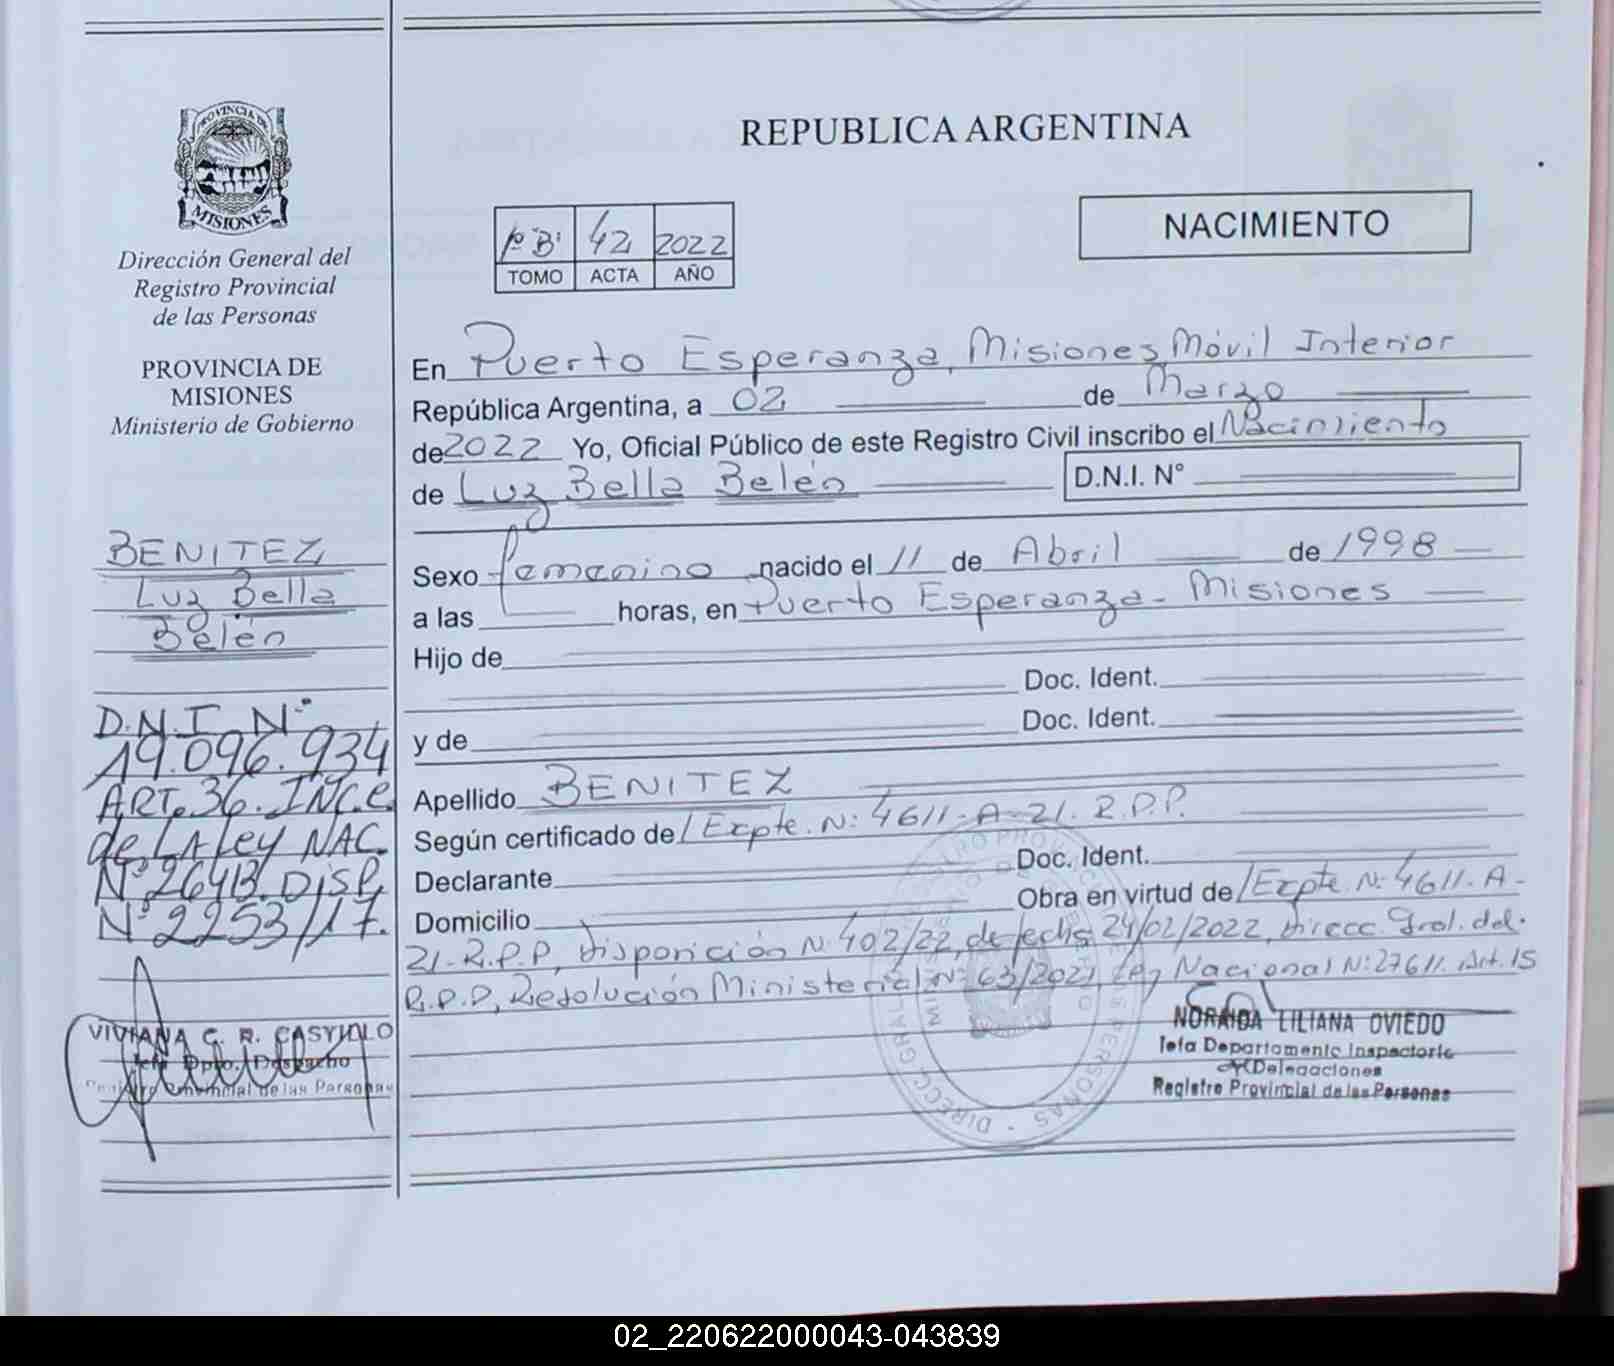 PROVINCIA DE
MISIONES
Dirección General del
Registro Provincial
de las Personas
PROVINCIA DE
MISIONES
Ministerio de Gobierno
BENITEZ
Luz Bella
Belén
D.N.I N°
19.096.934
ART. 36. INC. C.
de LA Ley NAC.
N° 26413. DISP.
N° 2253/17.
VIVIANA G. R. CASTILLO
Jefe Dpto. Despacho
Registro Provincial de las Personas
REPUBLICA ARGENTINA
NACIMIENTO
1° "B" 42 2022
TOMO ACTA AÑO
En Puerto Esperanza, Misiones Móvil Interior
República Argentina, a 02 de Marzo
de 2022 Yo, Oficial Público de este Registro Civil inscribo el Nacimiento
de Luz Bella Belén D.N.I. N°
Sexo femenino nacido el 11 de Abril de 1998
a las horas, en Puerto Esperanza - Misiones
Hijo de
Doc. Ident.
y de Doc. Ident.
Apellido BENITEZ
Según certificado de Expte. N: 4611-A-21. R.P.P.
Declarante Doc. Ident.
Domicilio Obra en virtud de Expte. N: 4611-A-
21-R.P.P, Disposición N: 402/22, de fecha 24/02/2022, Direcc. Gral. del
R.P.P, Resolución Ministerial N: 63/2021, Ley Nacional N: 27611. Art. 15
NORAIDA LILIANA OVIEDO
Jefa Departamento Inspectoría
Delegaciones
Registro Provincial de las Personas
02_220622000043-043839